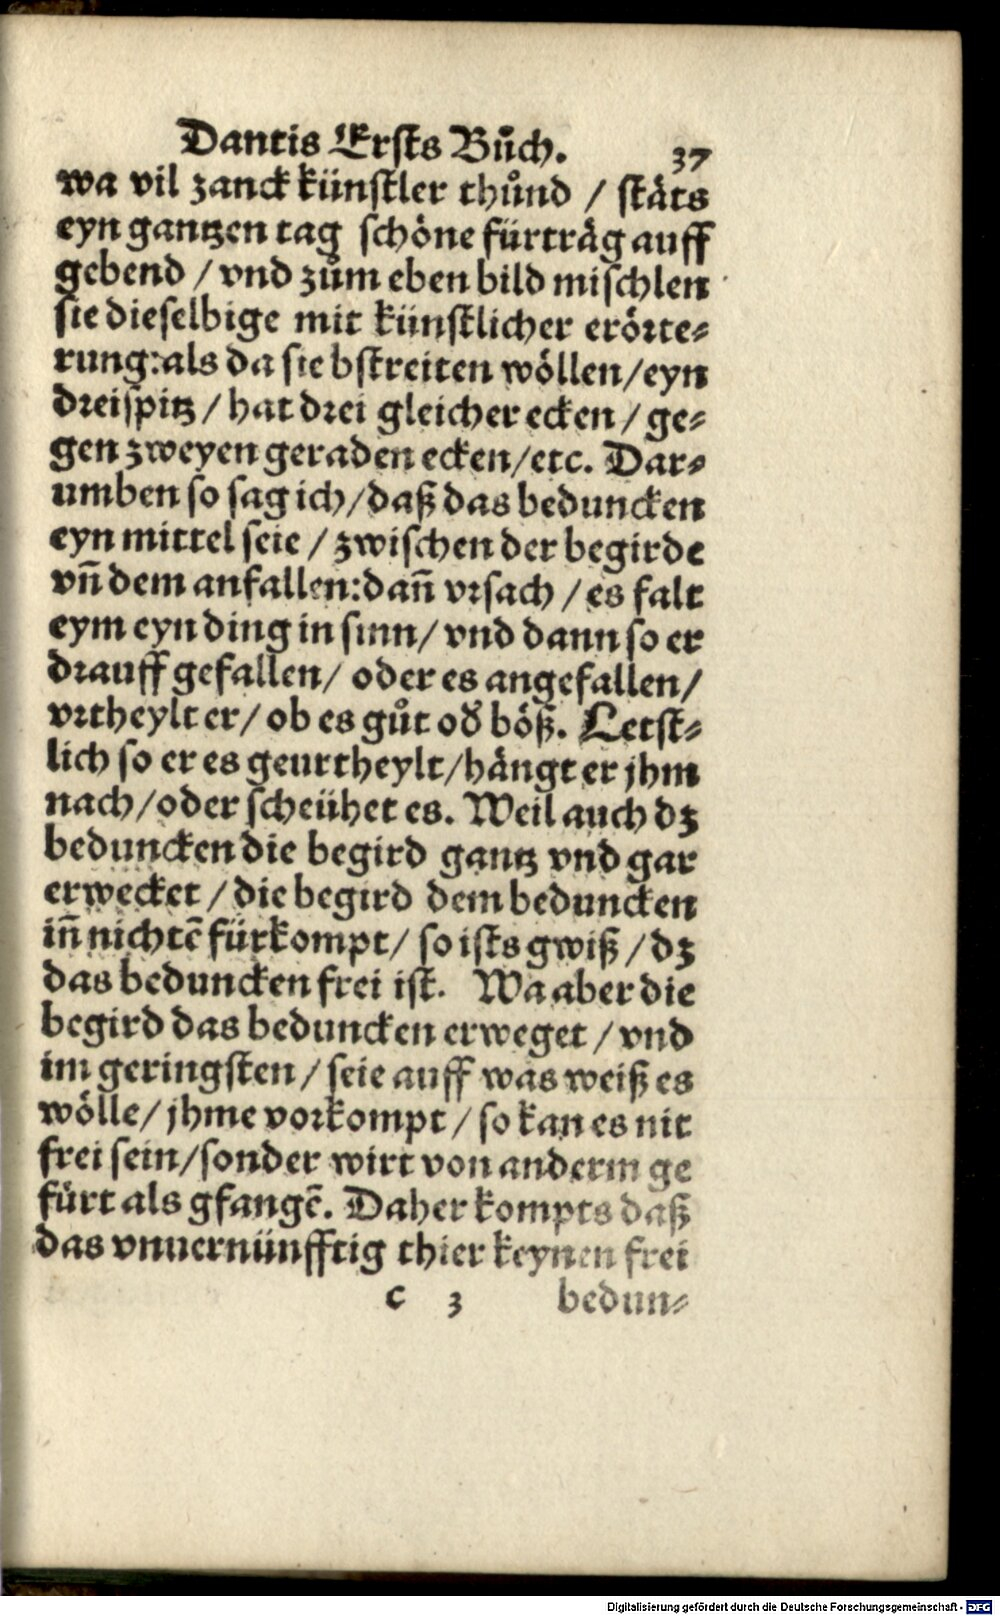 Dantis Ersts Bůch. 37
wa vil zanck künstler thůnd / stäts
eyn gantzen tag schöne fürträg auff
gebend / vnd zům eben bild mischlen
sie dieselbige mit künstlicher erörte⸗
rung: als da sie bstreiten wöllen / eyn
dreispitz / hat drei gleicher ecken / ge⸗
gen zweyen geraden ecken / etc. Dar⸗
umben so sag ich / daß das beduncken
eyn mittel seie / zwischen der begirde
vn̄ dem anfallen: dan̄ vrsach / es falt
eym eyn ding in sinn / vnd dann so er
drauff gefallen / oder es angefallen /
vrtheylt er / ob es gůt od̕ böß. Letst⸗
lich so er es geurtheylt / hängt er jhm
nach / oder scheühet es. Weil auch dz
beduncken die begird gantz vnd gar
erwecket / die begird dem beduncken
in̄ nichtē fürkompt / so ists gwiß / dz
das beduncken frei ist. Wa aber die
begird das beduncken erweget / vnd
im geringsten / seie auff was weiß es
wölle / jhme vorkompt / so kan es nit
frei sein / sonder wirt von anderm ge
fürt als gfangē. Daher kompts daß
das vnuernünfftig thier keynen frei
c 3 bedun⸗
Digitalisierung gefördert durch die Deutsche Forschungsgemeinschaft - DFG